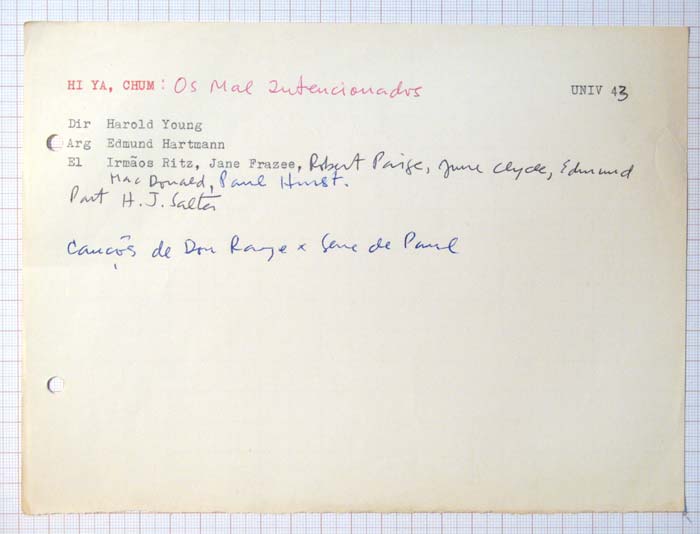 HI YA, CHUM: Os Mal Intencionados UNIV 43
Dir Harold Young
Arg Edmund Hartmann
El Irmãos Ritz, Jane Frazee, Robert Paige, June Clyde, Edmund
Mac Donald, Paul Hurst.
Part H. J. Salter
Canções de Don Raye x Gene de Paul